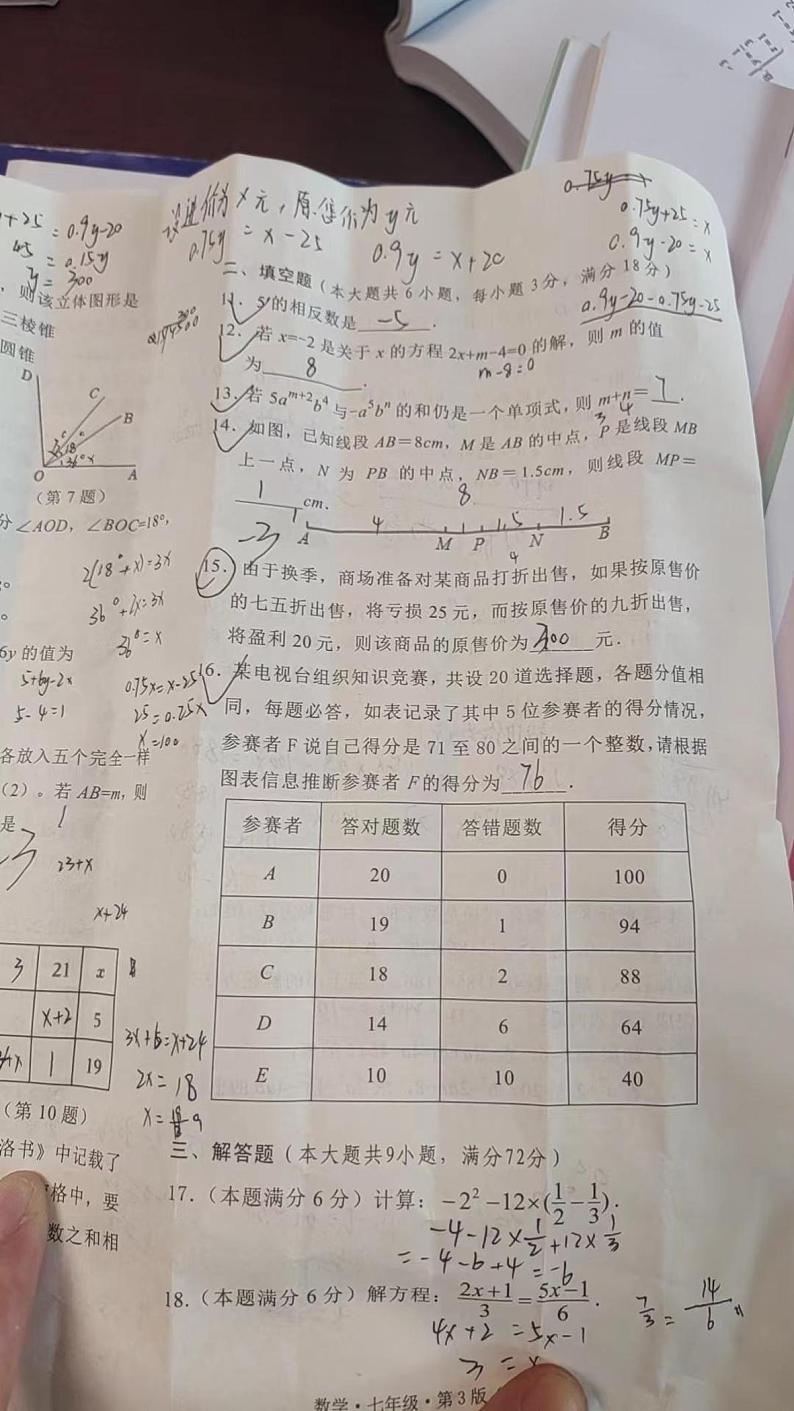 设进价为x元,原售价为y元
0.75y = x-25
0.9y = x+20
0.75y+25=x
0.9y-20=x
0.9y-20-0.75y-25
+25 = 0.9y-20
45 = 0.15y
y = 300
则该立体图形是
三棱锥
圆锥
D
C
B
18°
O
A
(第7题)
分∠AOD,∠BOC=18°,
2(18°+x)=3x
36°+2x=3x
36°=x
6y 的值为
5+6y-2x
5-4=1
0.75x=x-25
25=0.25x
x=100
各放入五个完全一样
(2)。若 AB=m, 则
是
23+x
x+24
3 21 x
x+2 5
1 19
3x+6=x+24
2x=18
x=18/2 9
(第10题)
洛书》中记载了
格中,要
数之和相
二、填空题(本大题共6小题,每小题3分,满分18分)
11. 5 的相反数是 -5 .
12. 若 x=-2 是关于 x 的方程 2x+m-4=0 的解,则 m 的值
为 8 .
m-8=0
13. 若 5a^{m+2}b^4 与 -a^5b^n 的和仍是一个单项式,则 m+n= 7 .
3 4
14. 如图,已知线段 AB=8cm, M 是 AB 的中点, P 是线段 MB
上一点, N 为 PB 的中点, NB=1.5cm, 则线段 MP=
1 cm.
8
4 1 1.5 1.5
A M P N B
4
-3
15. 由于换季,商场准备对某商品打折出售,如果按原售价
的七五折出售,将亏损 25 元,而按原售价的九折出售,
将盈利 20 元,则该商品的原售价为 300 元.
16. 某电视台组织知识竞赛,共设 20 道选择题,各题分值相
同,每题必答,如表记录了其中 5 位参赛者的得分情况,
参赛者 F 说自己得分是 71 至 80 之间的一个整数,请根据
图表信息推断参赛者 F 的得分为 76 .
参赛者 答对题数 答错题数 得分
A 20 0 100
B 19 1 94
C 18 2 88
D 14 6 64
E 10 10 40
三、解答题(本大题共9小题,满分72分)
17.(本题满分 6 分)计算: -2²-12×(1/2-1/3).
-4-12×1/2+12×1/3
=-4-6+4=-6
18.(本题满分 6 分)解方程: (2x+1)/3=(5x-1)/6.
4x+2 =5x-1
3 =x
7/3 = 14/6
数学·七年级·第3版